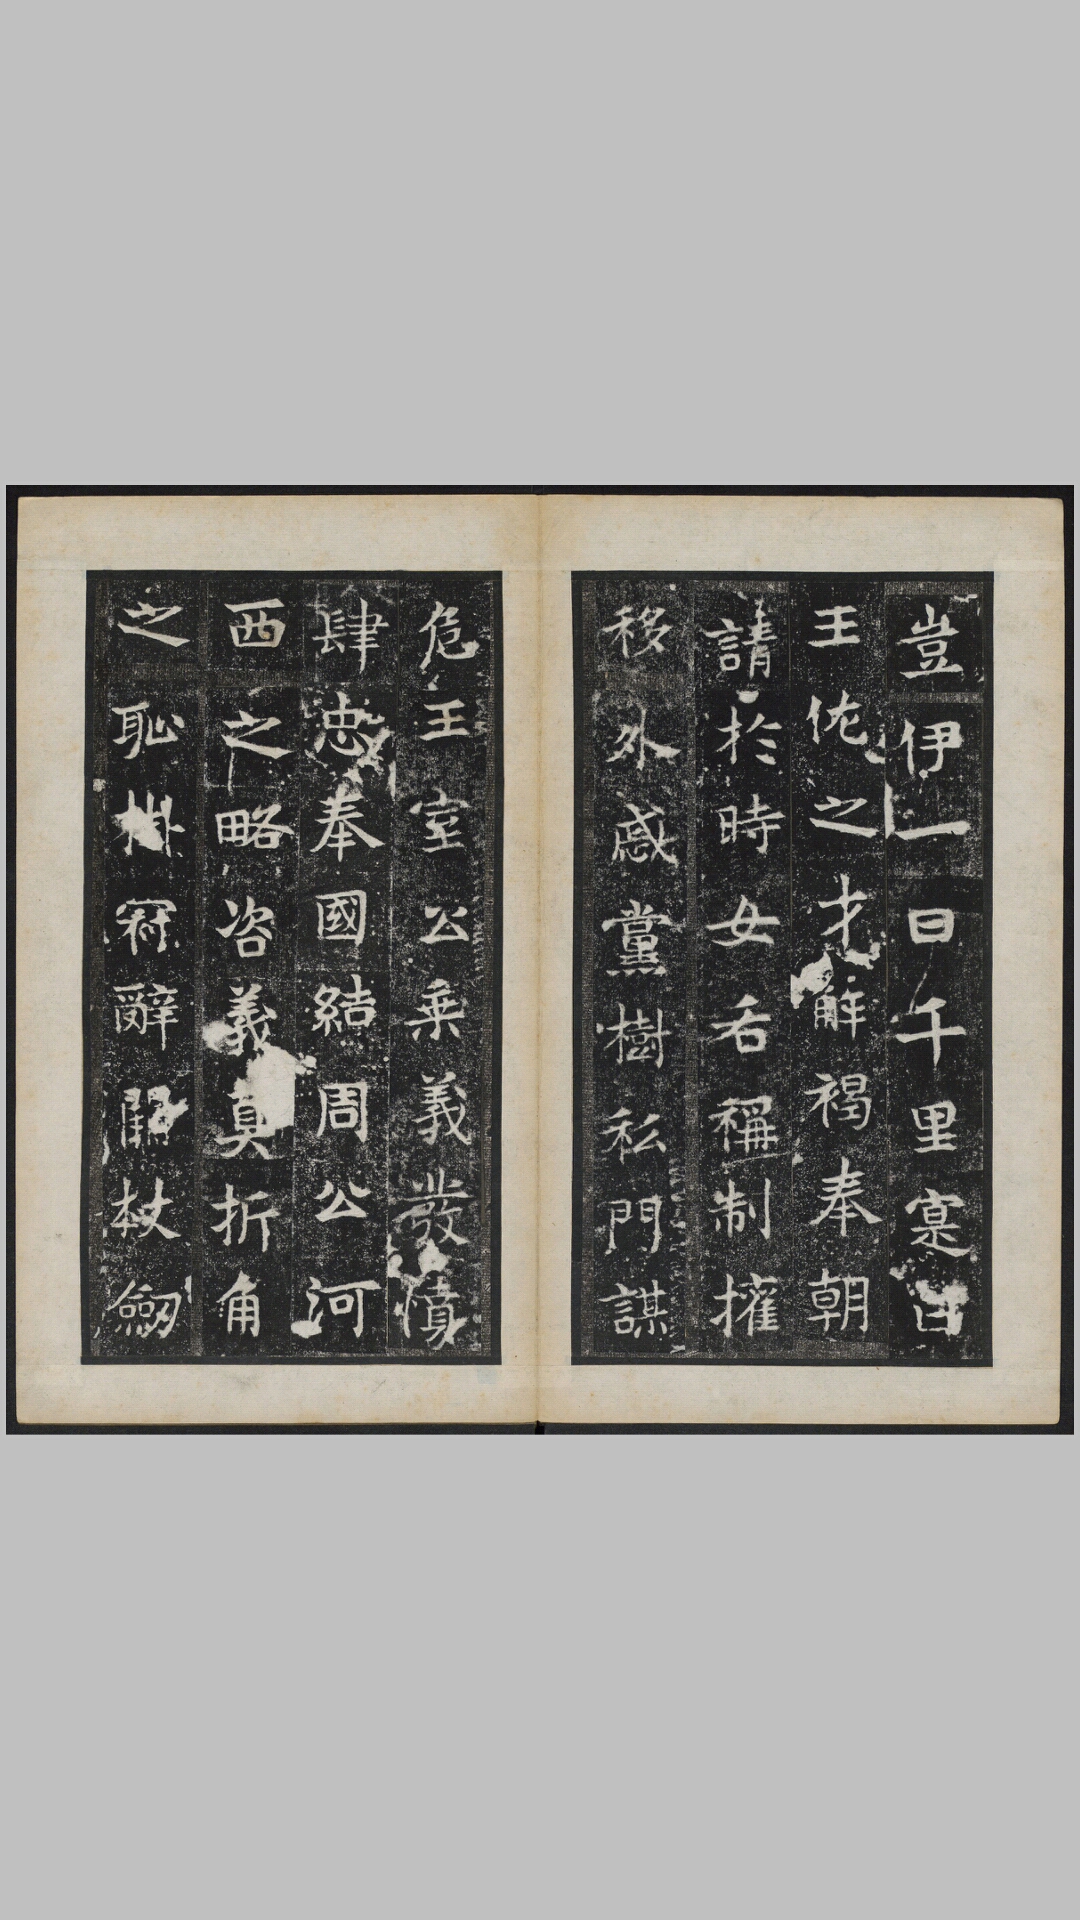 豈伊一日千里寔曰
王佐之才解褐奉朝
請於時女后稱制權
移外戚黨樹私門謀
危王室公乘義發憤
肆忠奉國結周公河
西之略咨義真折角
之恥掛冠辭闕杖劒